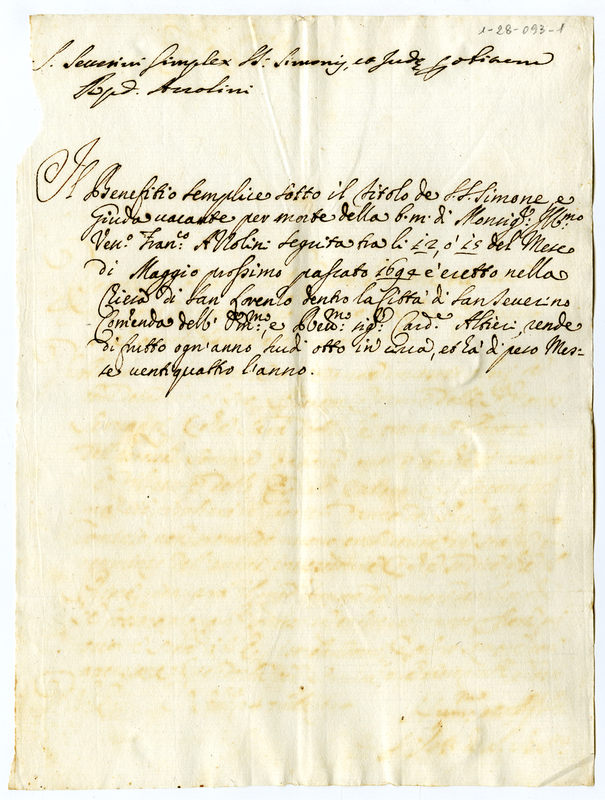 1-28-093-1
S. Severini Simplex SS. Simonis, et Judę
Rpd. Anolini
Il Benefitio semplice sotto il titolo de S.S. Simone, e
Giuda vacante per morte della b: m: di Monsigre: Illmo
Veno: Franco: Anolini seguita tra li 12, ò 15 del Mese
di Maggio prossimo passato 1694 è eretto nella
Chiesa di San Lorenzo dentro la Città di San Severino
Comenda dell' Emmo:, e Revmo: sigr: Carde: Altieri, rende
di frutto ogn'anno scudi otto in circa, et hà di peso Mes=
se venti quattro l'anno.